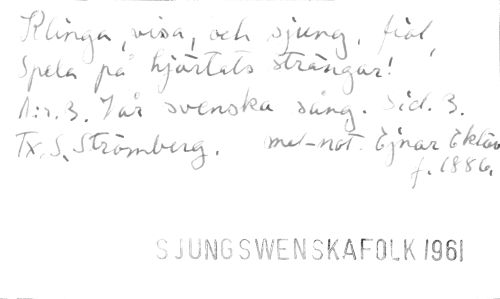 Klinga, visa, och sjung, fiol,
Spela på hjärtats strängar!
N:r. 3. Vår svenska sång. Sid. 3.
Tx. S. Strömberg. mel-not. Ejnar Eklöv
f. 1886.
SJUNGSWENSKAFOLK 1961